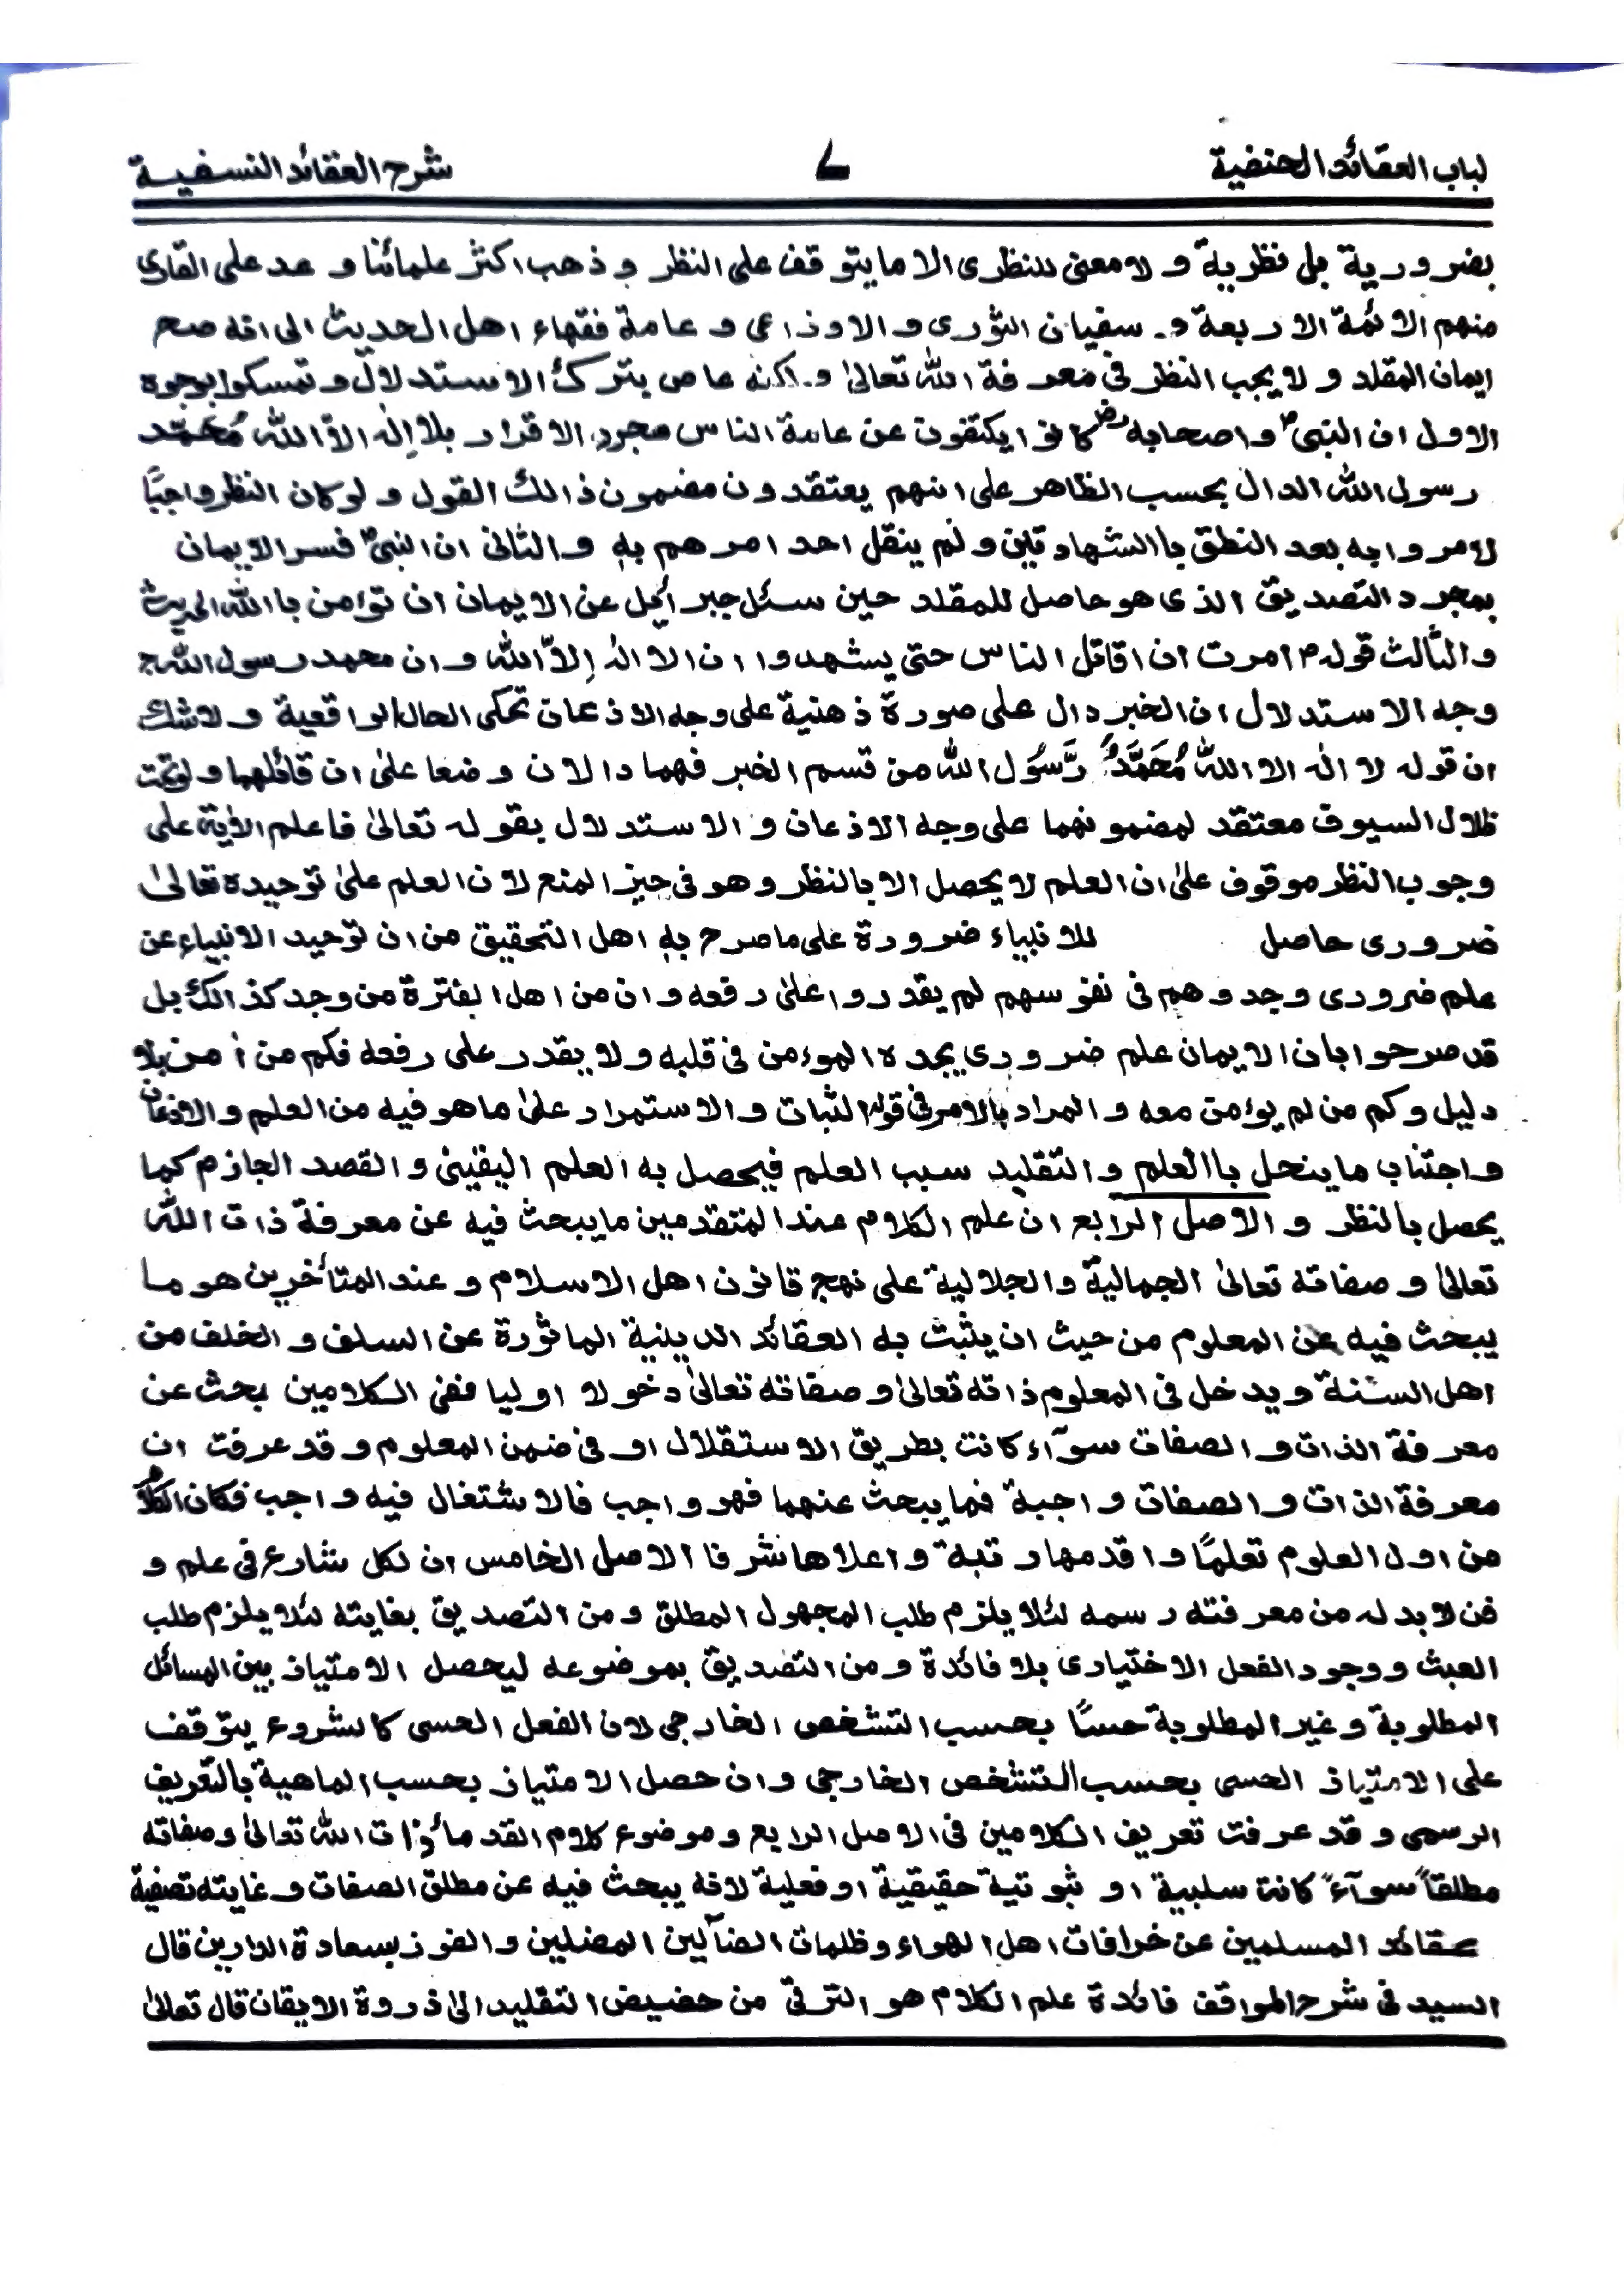 لباب العقائد الحنفية ۷ شرح العقائد النسفية
بضرورية بل نظرية ولا معنى للنظرى الا ما يتوقف على النظر وذهب اكثر علمائنا وعد على القارى
منهم الائمة الاربعة و سفيان الثورى والاوذاعى وعامة فقهاء اهل الحديث الى انه صح
ايمان المقلد ولا يجب النظر فى معرفة الله تعالىٰ ولكنه عاص بترك الاستدلال وتمسكوا بوجوه
الاول ان النبىؐ واصحابهؓ كانوا يكتفون عن عامة الناس مجرد الاقرار بلا إله الا الله مُحَمَّد
رسول الله الدال بحسب الظاهر على انهم يعتقدون مضمون ذالك القول ولو كان النظر واجبًا
لامروا به بعد النطق باالشهادتين ولم ينقل احد امرهم به والثانى ان النبىؐ فسر الايمان
بمجرد التصديق الذى هو حاصل للمقلد حين سئل جبرأيل عن الايمان ان توٴمن باالله الحديث
والثالث قولهؐ امرت ان اقاتل الناس حتى يشهدوا ان لا اله إلاّ الله وان محمد رسول الله ج
وجه الاستدلال ان الخبر دال على صورة ذهنية على وجه الاذعان تحكى الحال الواقعية ولاشك
ان قوله لا اله الا الله مُحَمَّدٌ رَّسُول الله من قسم الخبر فهما دالان وضعا علىٰ ان قائلهما ولو تحت
ظلال السيوف معتقد لمضمونهما على وجه الاذعان والاستدلال بقوله تعالىٰ فاعلم الأية على
وجوب النظر موقوف علىٰ ان العلم لا يحصل الا بالنظر وهو فى حيز المنع لان العلم علىٰ توحيده تعالىٰ
ضرورى حاصل للانبياء ضرورة على ما صرح به اهل التحقيق من ان توحيد الانبياء عن
علم ضرورى وجدوهم فى نفوسهم لم يقدروا علىٰ رفعه وان من اهل الفترة من وجد كذالك بل
قد صرحوا بان الايمان علم ضرورى يجده الموءمن فى قلبه ولا يقدر على رفعه فكم من أمن بلا
دليل وكم من لم يوءمن معه والمراد بالامر فى قوله الثبات والاستمرار علىٰ ما هو فيه من العلم والاذعان
واجتناب ما ينحل باالعلم والتقليد سبب العلم فيحصل به العلم اليقينى والقصد الجازم كما
يحصل بالنظر والاصل الرابع ان علم الكلام عند المتقدمين ما يبحث فيه عن معرفة ذات الله
تعالىٰ وصفاته تعالىٰ الجمالية والجلالية على نهج قانون اهل الاسلام وعند المتأخرين هو ما
يبحث فيه عن المعلوم من حيث ان يثبت به العقائد الدينية الماثورة عن السلف والخلف من
اهل السنة ويدخل فى المعلوم ذاته تعالىٰ وصفاته تعالىٰ دخولا اوليا ففى الكلامين بحث عن
معرفة الذات والصفات سوآء كانت بطريق الاستقلال او فى ضمن المعلوم وقد عرفت ان
معرفة الذات والصفات واجبة فما يبحث عنهما فهو واجب فالاشتغال فيه واجب فكان الكلام
من اول العلوم تعلمًا واقدمها رتبة واعلاها شرفا الاصل الخامس ان لكل شارع فى علم و
فن لابد له من معرفته رسمه لئلا يلزم طلب المجهول المطلق ومن التصديق بغايته لئلا يلزم طلب
العبث ووجود الفعل الاختيارى بلا فائدة ومن التصديق بموضوعه ليحصل الامتياز بين المسائل
المطلوبة وغير المطلوبة حسًا بحسب التشخص الخارجى لان الفعل الحسى كالشروع يتوقف
على الامتياز الحسى بحسب التشخص الخارجى وان حصل الامتياز بحسب الماهية بالتعريف
الرسمى وقد عرفت تعريف الكلامين فى الاصل الرابع وموضوع كلام القدمأ ذات الله تعالىٰ وصفاته
مطلقاً سوآءً كانت سلبية او ثبوتية حقيقية او فعلية لانه يبحث فيه عن مطلق الصفات وغايته تصفية
عقائد المسلمين عن خرافات اهل الهواء وظلمات الضآلين المضلين والفوز بسعادة الدارين قال
السيد فى شرح المواقف فائدة علم الكلام هو الترقى من حضيض التقليد الىٰ ذروة الايقان قال تعالىٰ